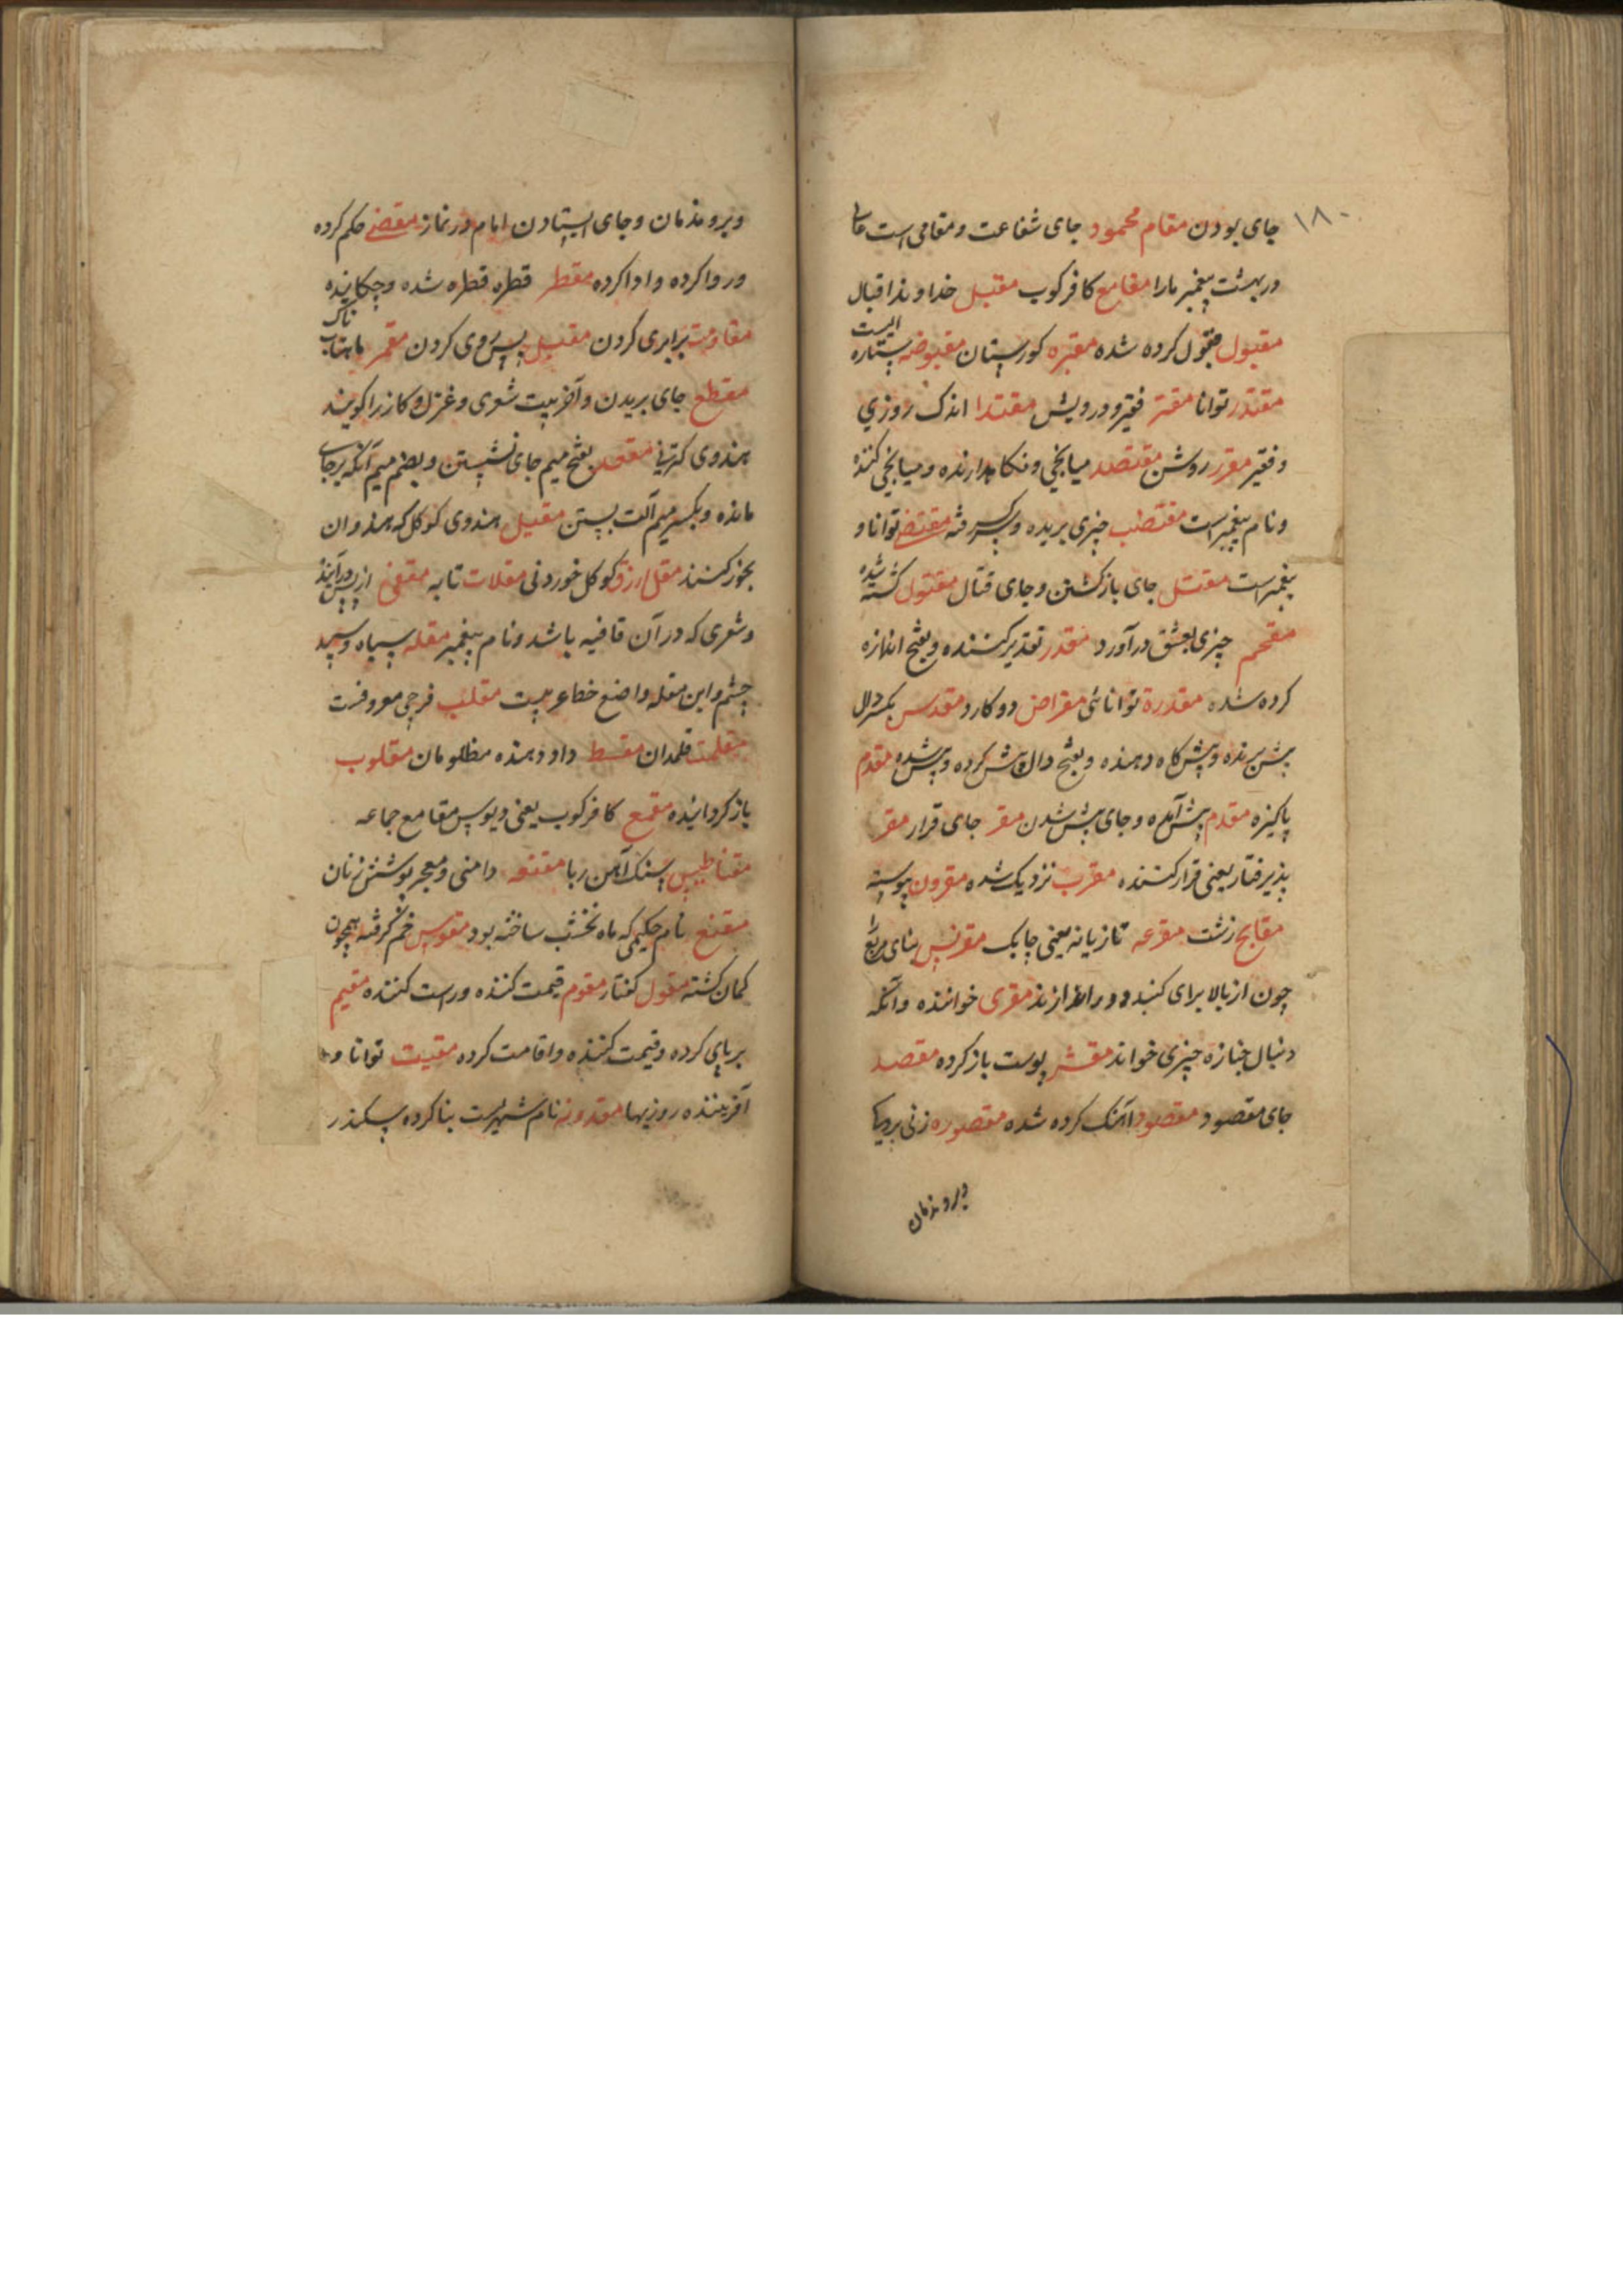 ۱۸۰
جای بودن مقام محمود جای شفاعت و مقامی است
در بهشت پیغمبر مارا مقامع کافر کوب مقبل خداوند اقبال
مقبول قبول کرده شده مقبره کورستان مقبوضه ستاره ایست
مقتدر توانا مقتر فقیر و درویش مقتدا اندک روزی
و فقیر مقرر روشن مقتصد میانجی و نکاهدارنده و میانجی کننده
و نام پیغمبر است مقتضب چیزی بریده و مقتضی توانا و
پیغمبر است مقتل جای باز کشتن و جای قتال مقتول کشته شده
مقحم چیزی بعشق درآورد مقدر تقدیر کننده و بفتح اندازه
کرده شده مقدرة توانائی مقراض دوکارد مقدس بکسر دال
پیش برنده و پیش کاه دهنده و بفتح دال پیش کرده و پیش شده مقدم
پاکیزه مقدم پیش آمده و جای پیش شدن مقر جای قرار مقر
پذیرفتار یعنی قرار کننده مقرب نزدیک شده مقرون پیوسته
مقابح زشت مقرعه تازیانه یعنی چابک مقرنس بنای مربع را
چون از بالا برای کنبد دور اندازند مقری خواننده و آنکه
دنبال جنازه چیزی خواند مقشر پوست باز کرده مقصد
جای مقصود مقصود آهنک کرده شده مقصوره زنی
ویرو مذمان
ویرو مذمان و جای ایستادن امام در نماز مقضی حکم کرده
و روا کرده و ادا کرده مقطر قطره قطره شده و چکانیده
مقاومت برابری کردن مقبل پس روی کردن مقمر ماهتاب ناک
مقطع جای بریدن و آخر بیت شعری و غزل و کازر را کویند
هندوی مقعد بفتح میم جای نشستن و بضم میم آنکه برجای
مانده و بکسر میم آلت بستن مقیل هندوی کوکل که هندوان
بخور کنند مقل ازرق کوکل خوردنی مقلات تابه مقفی از پس درآیند
و شعری که در آن قافیه باشد و نام پیغمبر مقله سیاه و سپید
چشم و ابن مقله واضع خط عربیست مقلب فرجی معروفست
مقلمت قلمدان مقسط داد دهنده مظلومان مقلوب
باز کردانیده مقمع کافر کوب یعنی دبوس مقامع جماعه
مقناطیس سنک آهن ربا مقنعه دامنی و معجر پوشش زنان
مقنع نام حکیمی که ماه نخشب ساخته بود مقوس خم گرفته همچون
کمان کشته مقول کفتار مقوم قیمت کننده و راست کننده مقیم
برپای کرده و قیمت کننده و اقامت کرده مقیت توانا و
آفریننده روزیها مقدونه نام شهریست بنا کرده سکندر